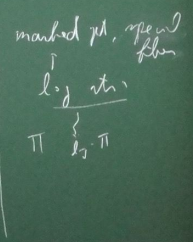 marked pt, special
fiber
↑
log str
}
π log-π